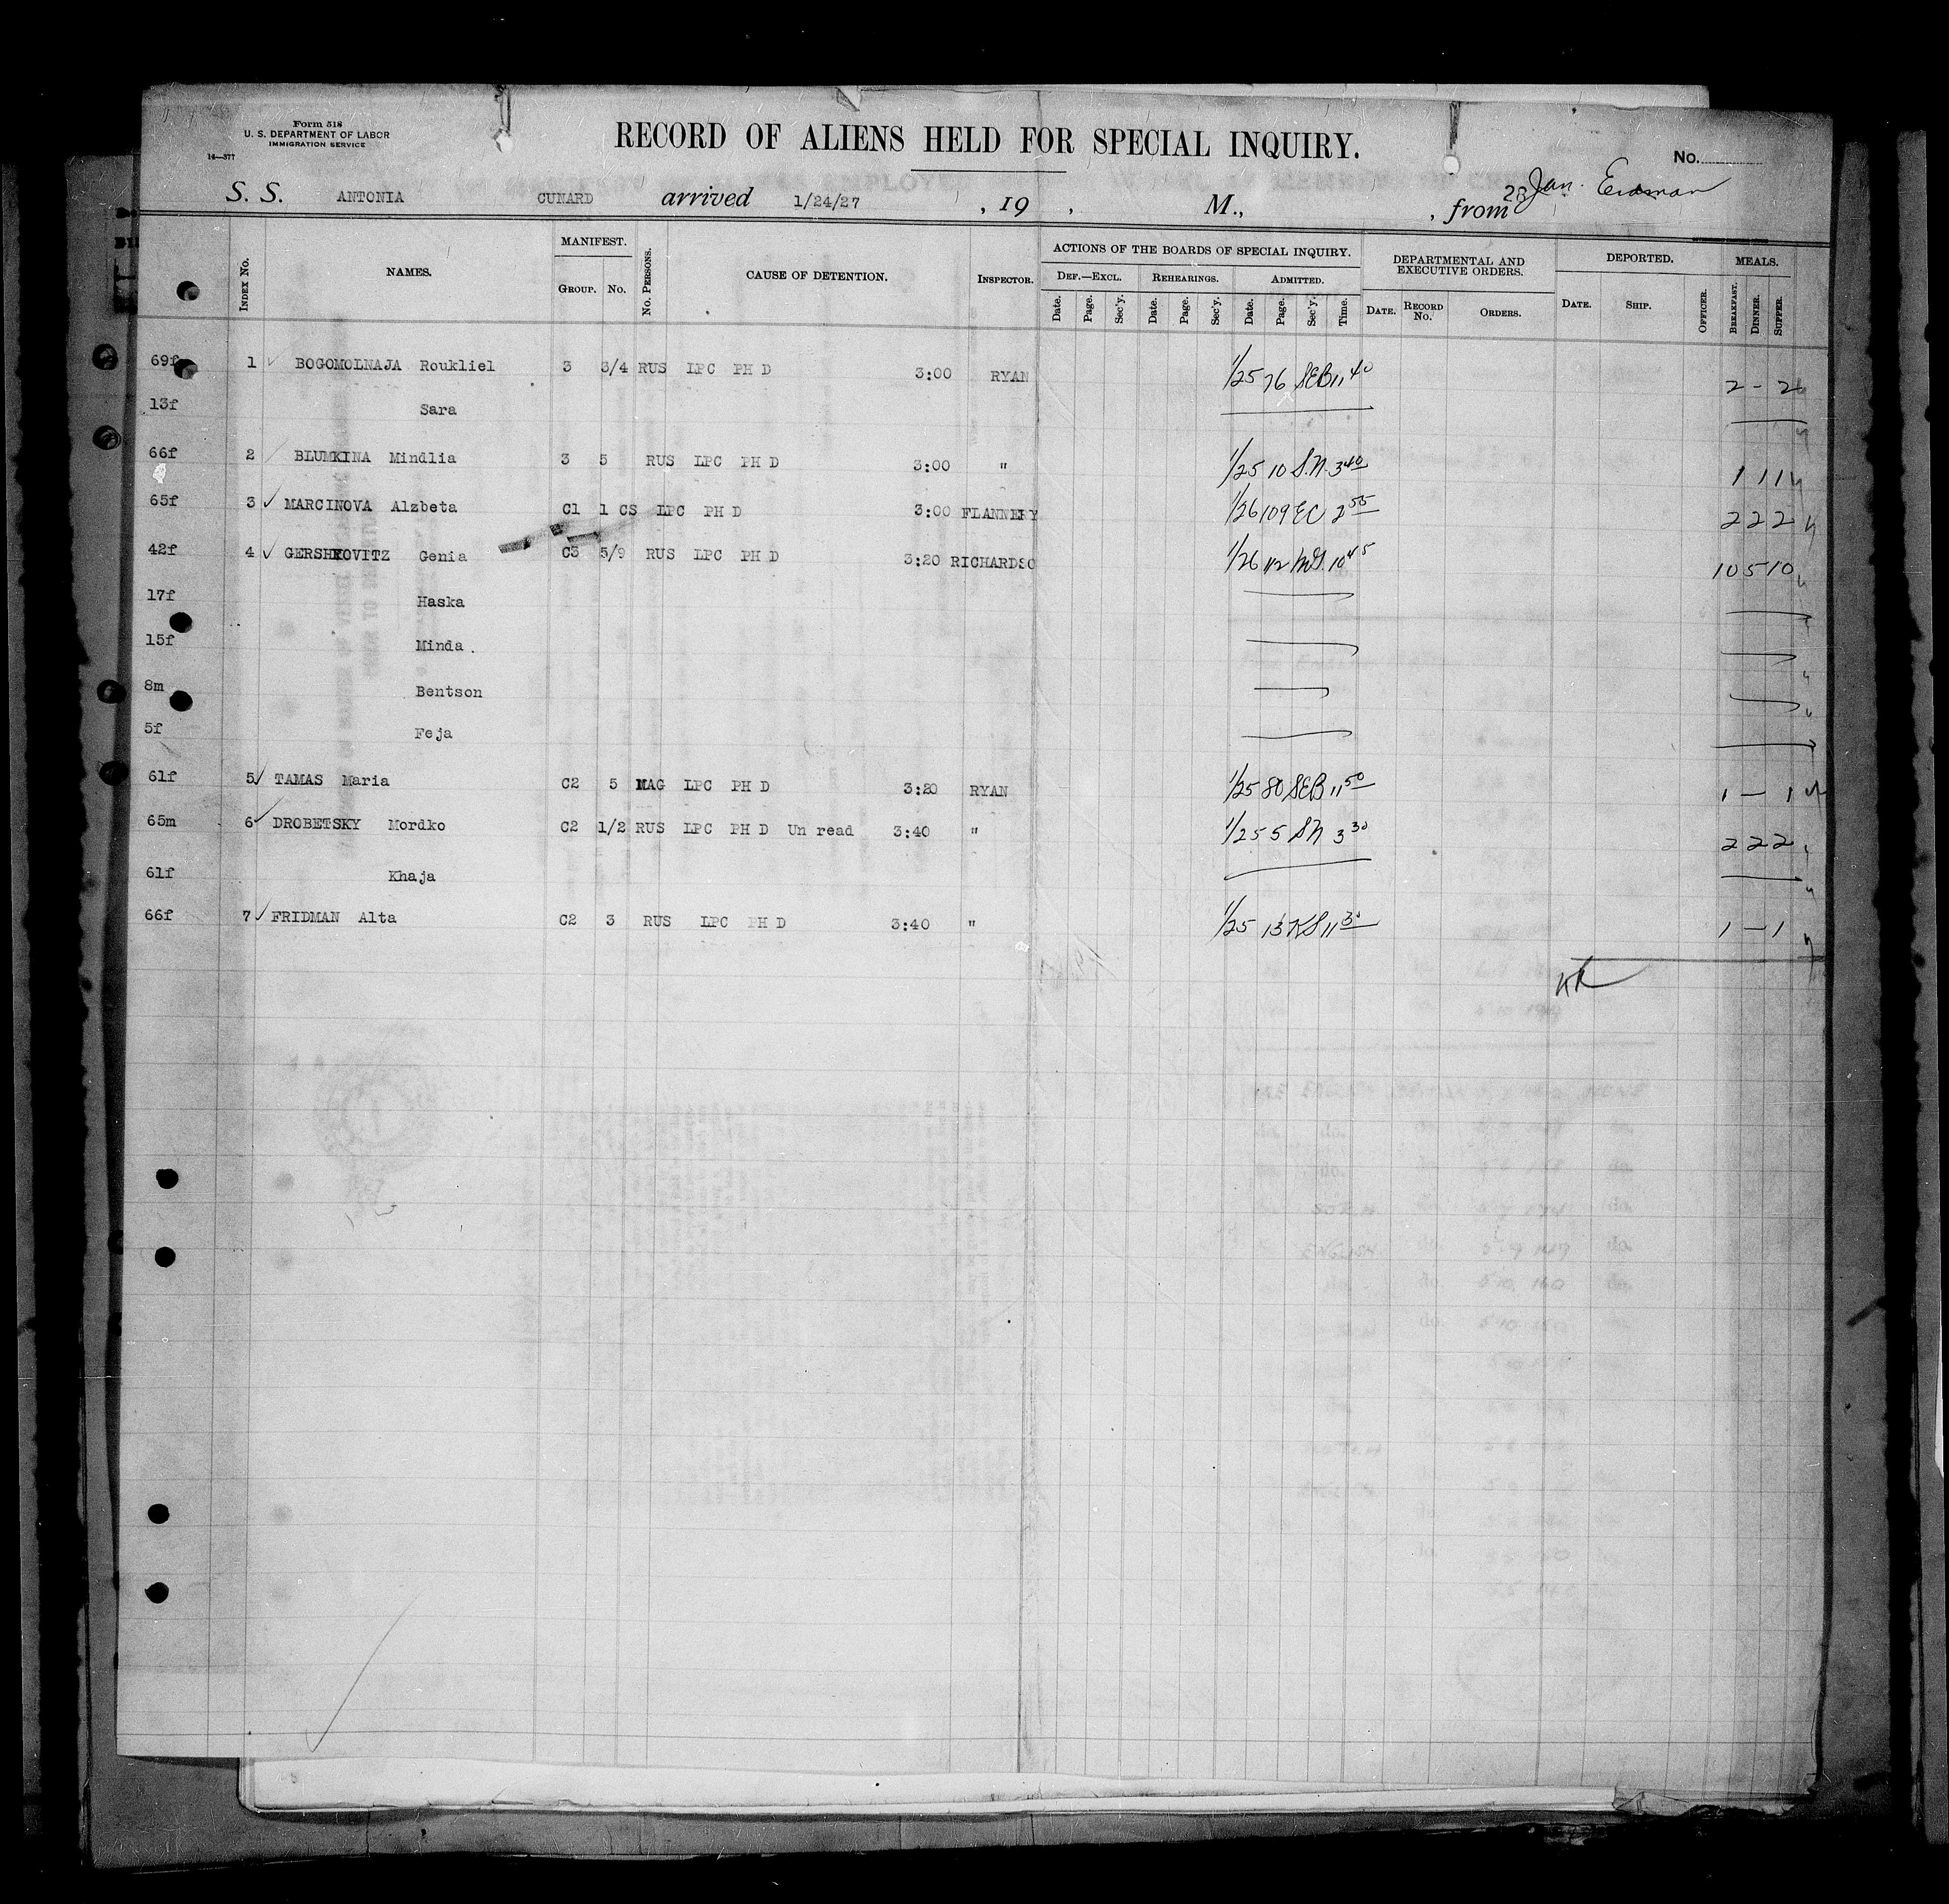 Form 518
U. S. DEPARTMENT OF LABOR
IMMIGRATION SERVICE
14—377
RECORD OF ALIENS HELD FOR SPECIAL INQUIRY.
No.
S. S. ANTONIA CUNARD arrived 1/24/27 , 19 , M., , from 28 Jan.
INDEX No. NAMES. MANIFEST. GROUP. No. No. PERSONS. CAUSE OF DETENTION. INSPECTOR. ACTIONS OF THE BOARDS OF SPECIAL INQUIRY. DEF.—EXCL. REHEARINGS. ADMITTED. Date. Page. Sec'y. Date. Page. Sec'y. Date. Page. Sec'y. Time. DEPARTMENTAL AND EXECUTIVE ORDERS. DATE. RECORD No. ORDERS. DEPORTED. DATE. SHIP. OFFICER. MEALS. BREAKFAST. DINNER. SUPPER.
69f 1 BOGOMOLNAJA Roukliel 3 3/4 RUS LPC PH D 3:00 RYAN 1/25 76 SEB 11 40 2 - 2
13f Sara
66f 2 BLUMKINA Mindlia 3 5 RUS LPC PH D 3:00 " 1/25 10 S.N. 3 40 1 1 1
65f 3 ✓ MARCINOVA Alzbeta C1 1 CS LPC PH D 3:00 FLANNERY 1/26 109 EC 2 55 2 2 2
42f 4 ✓ GERSHKOVITZ Genia C3 5/9 RUS LPC PH D 3:20 RICHARDSO 1/26 112 10 45 10 5 10
17f Haska
15f Minda .
8m Bentson
5f Feja
61f 5 ✓ TAMAS Maria C2 5 MAG LPC PH D 3:20 RYAN 1/25 80 SEB 11 50 1 — 1
65m 6 ✓ DROBETSKY Mordko C2 1/2 RUS LPC PH D Un read 3:40 " 1/25 5 SN 3 30 2 2 2
61f Khaja
66f 7 ✓ FRIDMAN Alta C2 3 RUS LPC PH D 3:40 " 1/25 13 KS 11 30 1 — 1